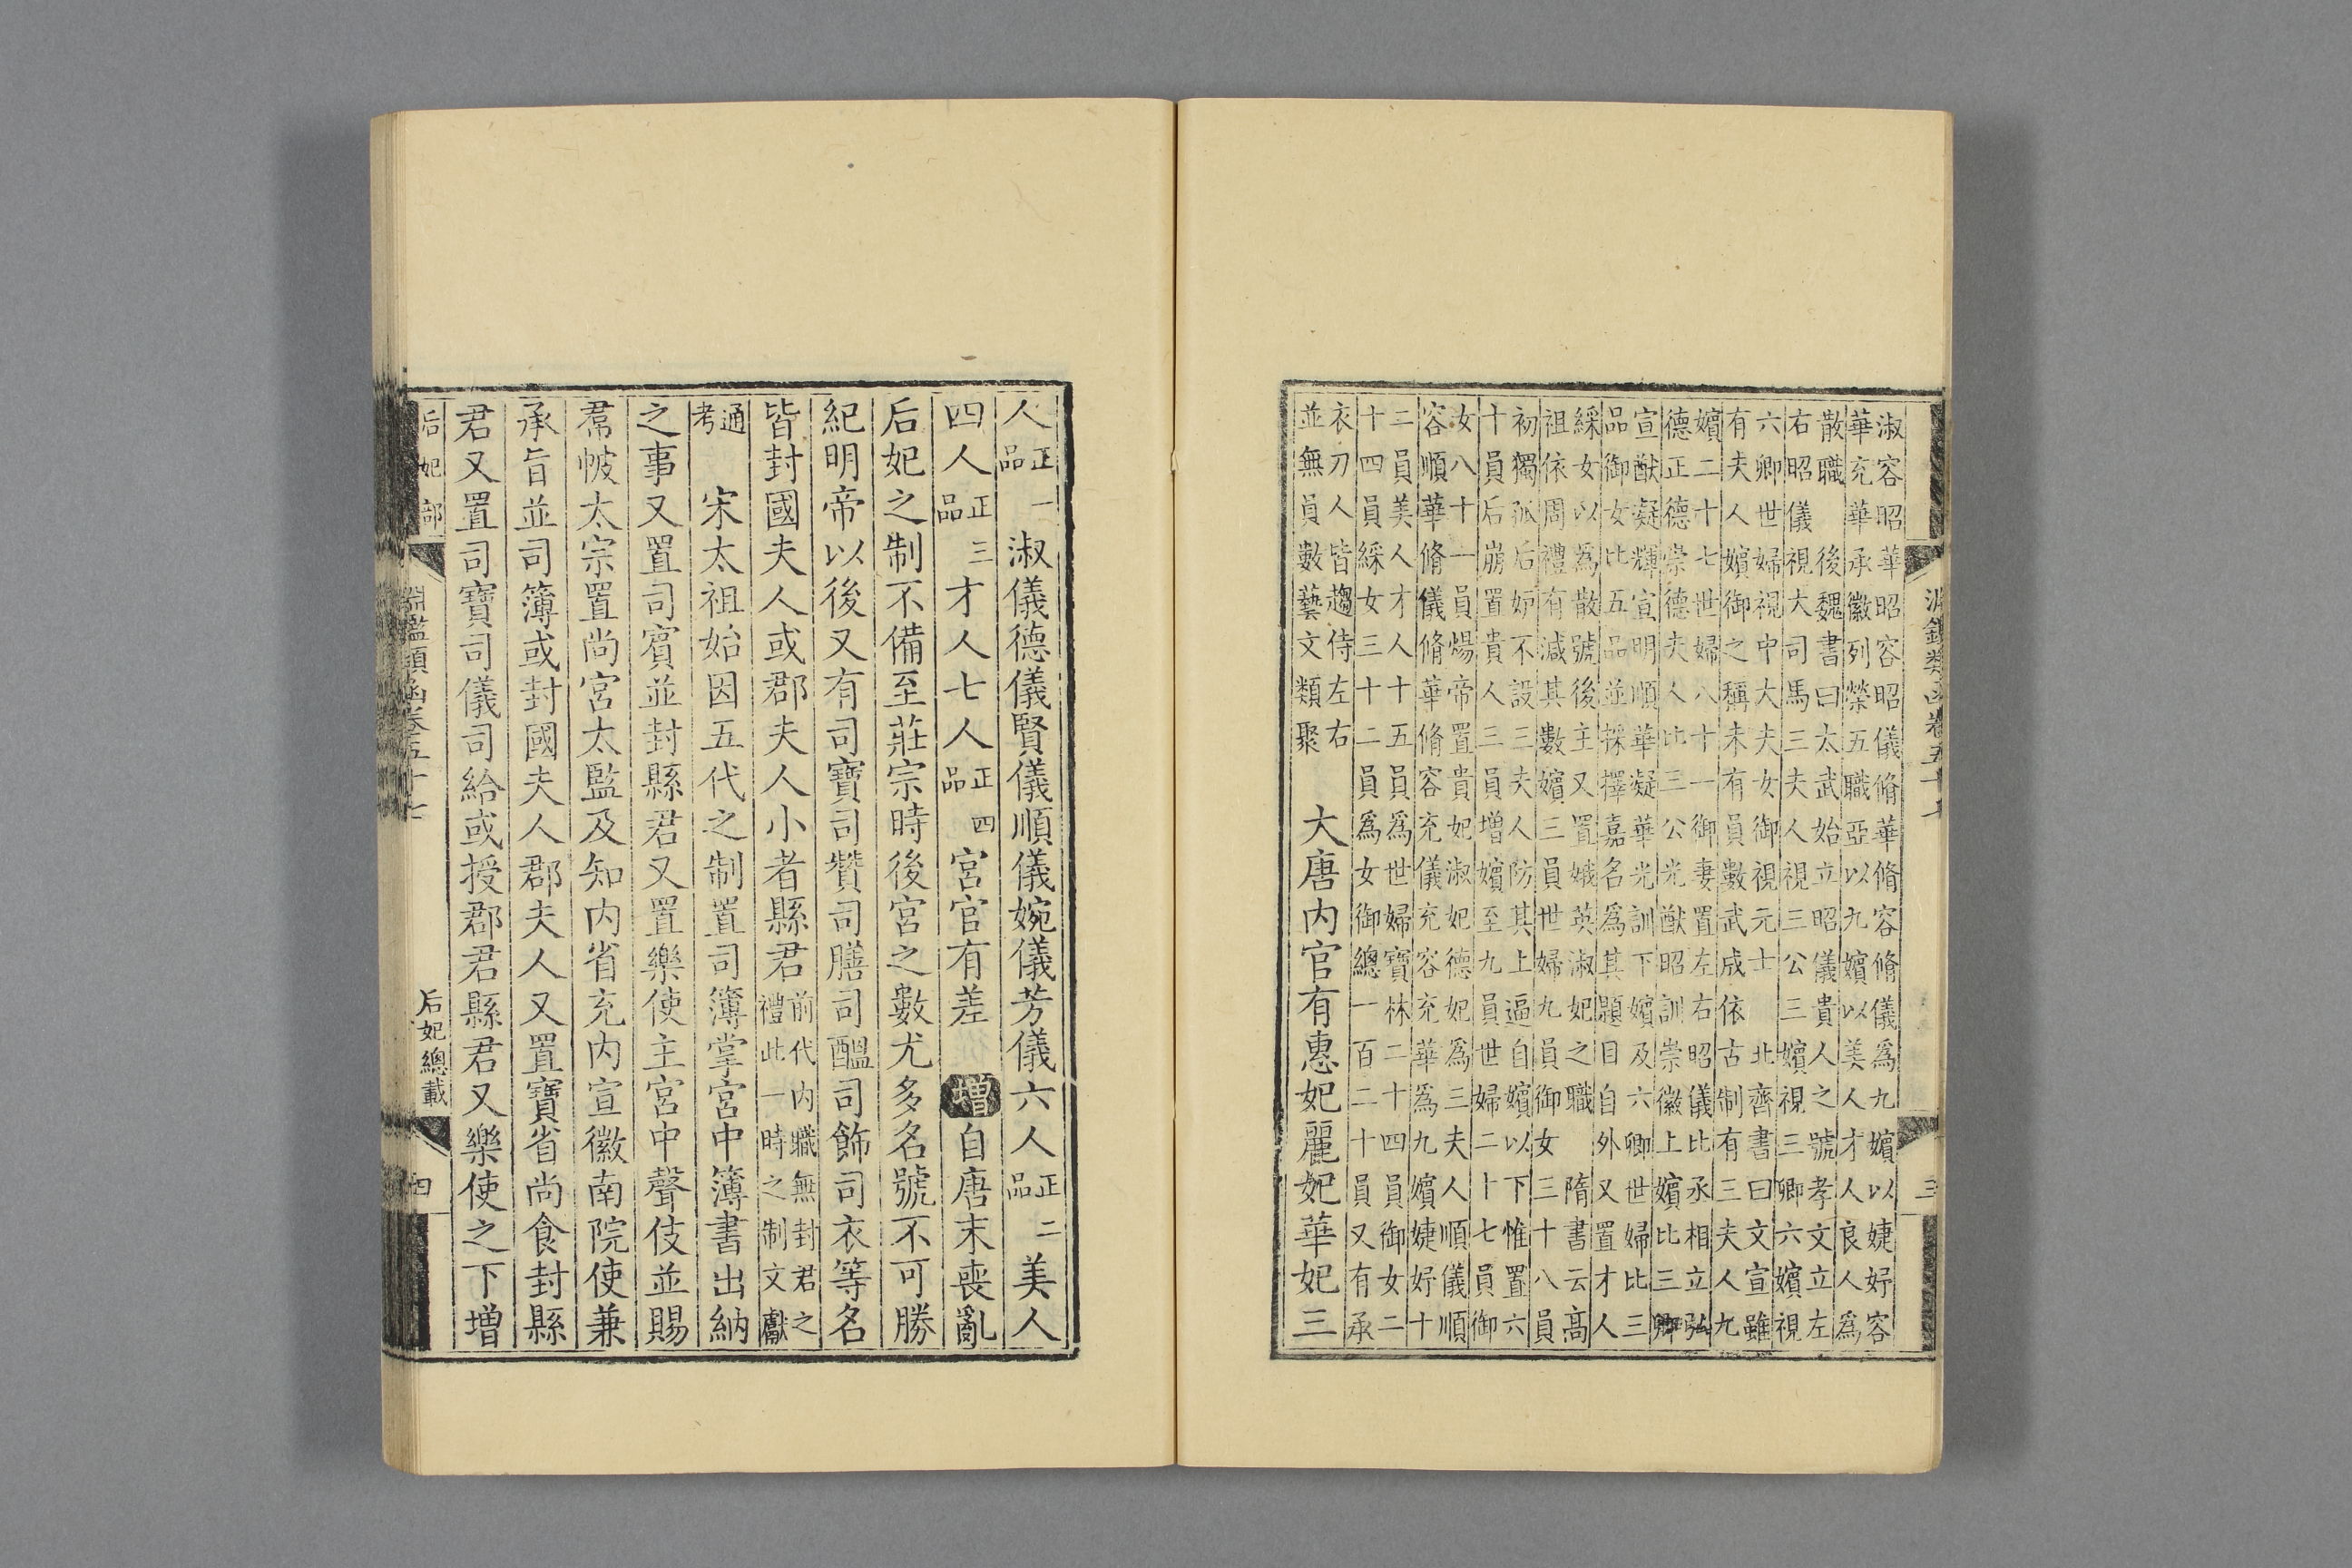 淵鑑類函卷五十七
三
淑容昭華昭容昭儀脩華脩容脩儀爲九嬪以婕妤容
華充華承徽列榮五職亞以九嬪以美人才人良人爲
散職　後魏書曰太武始立昭儀貴人之號孝文立左
右昭儀視大司馬三夫人視三公三嬪視三卿六嬪視
六卿世婦視中大夫女御視元士　北齊書曰文宣雖
有夫人嬪御之稱未有員數武成依古制有三夫人九
嬪二十七世婦八十一御妻置左右昭儀比丞相立弘
德正德崇德夫人比三公光猷昭訓崇徽上嬪比三卿
宣猷凝輝宣明順華凝華光訓下嬪及六卿世婦比三
品御女比五品並採擇嘉名爲其題目自外又置才人
綵女以爲散號後主又置娥英淑妃之職　隋書云髙
祖依周禮有減其數嬪三員世婦九員御女三十八員
初獨孤后妒不設三夫人防其上逼自嬪以下惟置六
十員后崩置貴人三員增嬪至九員世婦二十七員御
女八十一員煬帝置貴妃淑妃德妃爲三夫人順儀順
容順華脩儀脩華脩容充儀充容充華爲九嬪婕妤十
二員美人才人十五員爲世婦寶林二十四員御女二
十四員綵女三十二員爲女御總一百二十員又有承
衣刀人皆趨侍左右
並無員數藝文類聚　大唐内官有惠妃麗妃華妃三
人正一品　淑儀德儀賢儀順儀婉儀芳儀六人正二品　美人
四人正三品　才人七人正四品　宮官有差　增自唐末喪亂
后妃之制不備至莊宗時後宮之數尤多名號不可勝
紀明帝以後又有司寶司贊司膳司醞司飾司衣等名
皆封國夫人或郡夫人小者縣君前代内職無封君之禮此一時之制文獻
通考　宋太祖始因五代之制置司簿掌宮中簿書出納
之事又置司賓並封縣君又置樂使主宮中聲伎並賜
帬帔太宗置尚宮太監及知内省充内宣徽南院使兼
承旨並司簿或封國夫人郡夫人又置寶省尚食封縣
君又置司寶司儀司給或授郡君縣君又樂使之下增
后妃部
淵鑑類函卷五十七
后妃總載
四